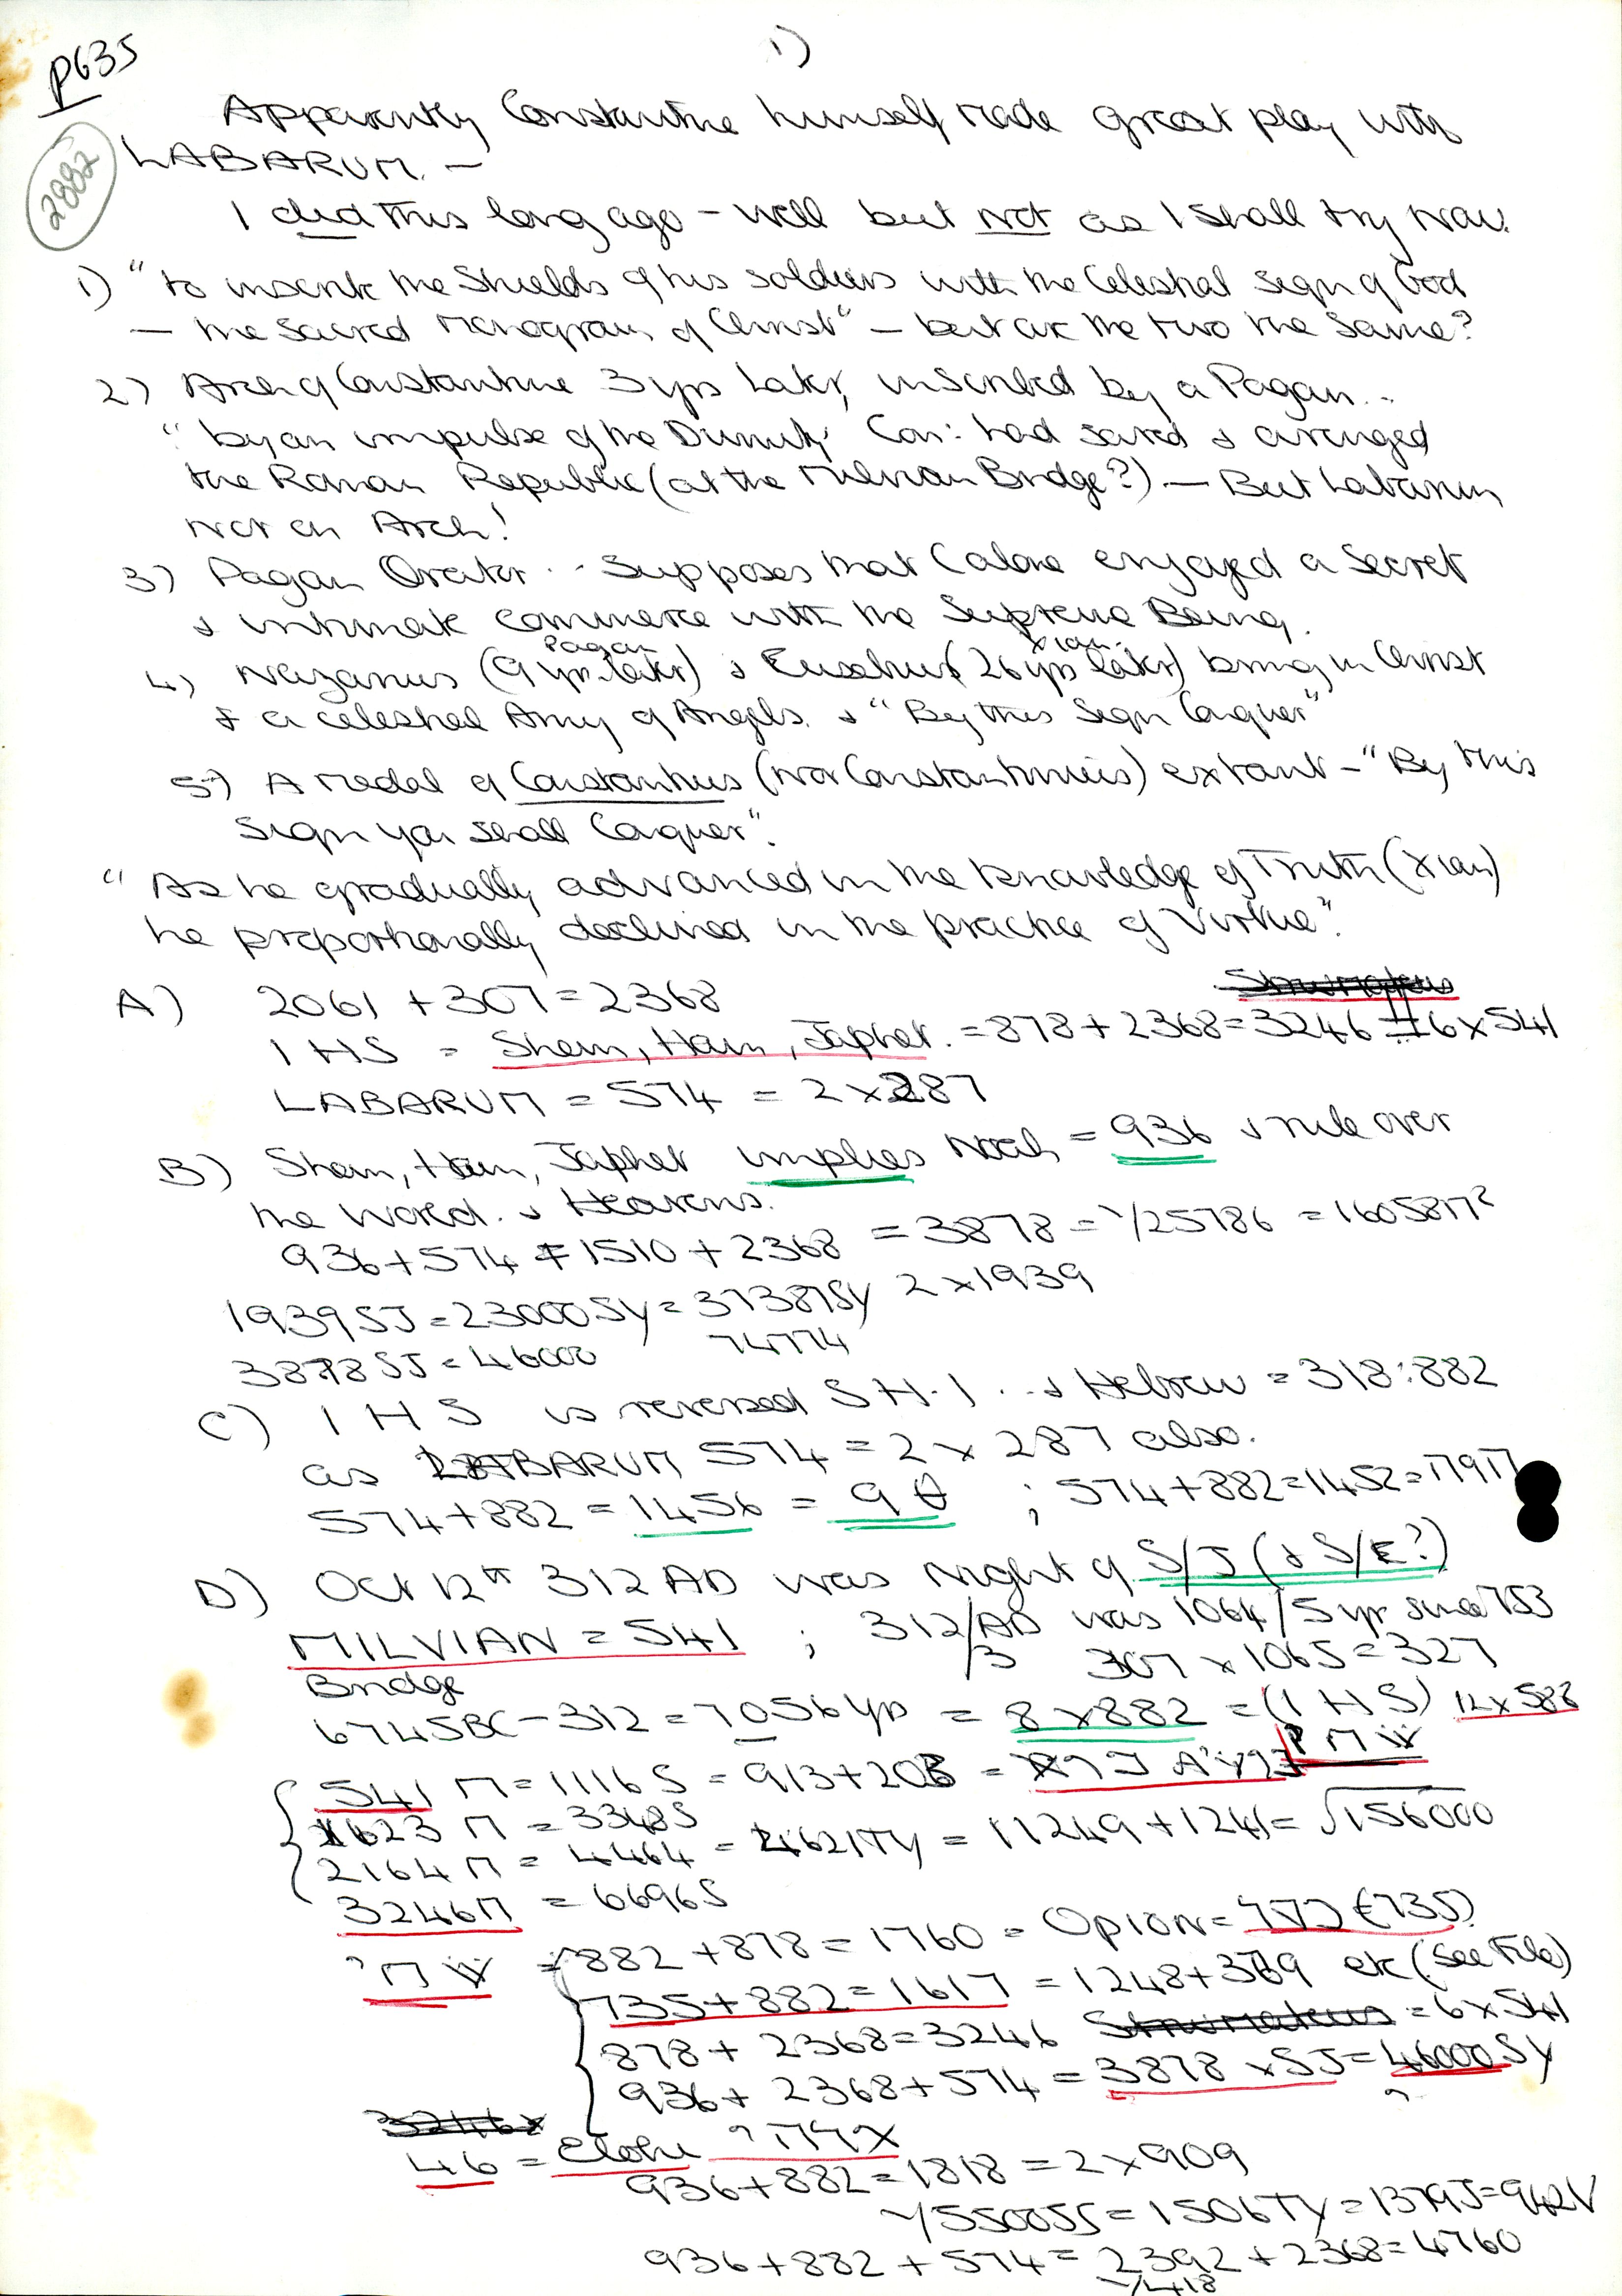 1)
P635
2882
Apparently Constantine himself made great play with
LABARUM. —
I did this long ago - well but not as I shall try now.
1) "to inscribe the Shields of his soldiers with the Celestial Sign of God
— the Sacred Monogram of Christ" — but are the two the same?
2) Arch of Constantine 3 yrs later, inscribed by a Pagan..
"by an impulse of the Divinity" Con: had saved & avenged
the Roman Republic (at the Milvian Bridge?). — But Labarum
not on Arch!
3) Pagan Orator .. Supposes that C alone enjoyed a Secret
& intimate commerce with the Supreme Being.
Pagan Xian
4) Nazarius (9 yrs later) & Eusebius (26 yrs later) bring in Christ
& a celestial Army of Angels. & "By this Sign Conquer"
5) A medal of Constantius (not Constantinius) extant - "By this
Sign you shall Conquer".
"As he gradually advanced in the knowledge of Truth (Xian)
he proportionally declined in the practice of Virtue".
A) 2061 + 307 = 2368
IHS = Shem, Ham, Japhet. = 878 + 2368 = 3246 = 6 x 541
LABARUM = 574 = 2 x 287
B) Shem, Ham, Japhet implies Noah = 936 & rule over
the World. & Heavens.
936 + 574 = 1510 + 2368 = 3878 = 1/25786 = 160581712
1939 SJ = 23000 SY = 37387 SY 2 x 1939
3878 SJ = 46000 74774
C) I H S is reversed S H I .. & Hebrew = 318:882
as LABARUM 574 = 2 x 287 also.
574 + 882 = 1456 = 9 θ ; 574 + 882 = 1452 =
D) Oct 12th 312 AD was Night of S/J (& S/E?)
MILVIAN = 541 ; 312/AD was 1064/5 yr since 753
Bridge /3 307 x 1065 = 327
6745 BC - 312 = 7056 yrs = 8 x 882 = (I HS) 12 x 588
541 M = 1116 S = 913 + 203 =
1623 M = 3348 S
2164 M = 4464 = 4621 TY = 11249 + 1241 = √156000
3246 M = 6696 S
= 882 + 878 = 1760 = Opion = (735)
735 + 882 = 1617 = 1248 + 369 etc (see File)
878 + 2368 = 3246 = 6 x 541
936 + 2368 + 574 = 3878 x SJ = 46000 SY
46 = Elohe
936 + 882 = 1818 = 2 x 909
1/55005S = 1506 TY = 1379 J = 942 V
936 + 882 + 574 = 2392 + 2368 = 4760
1/418